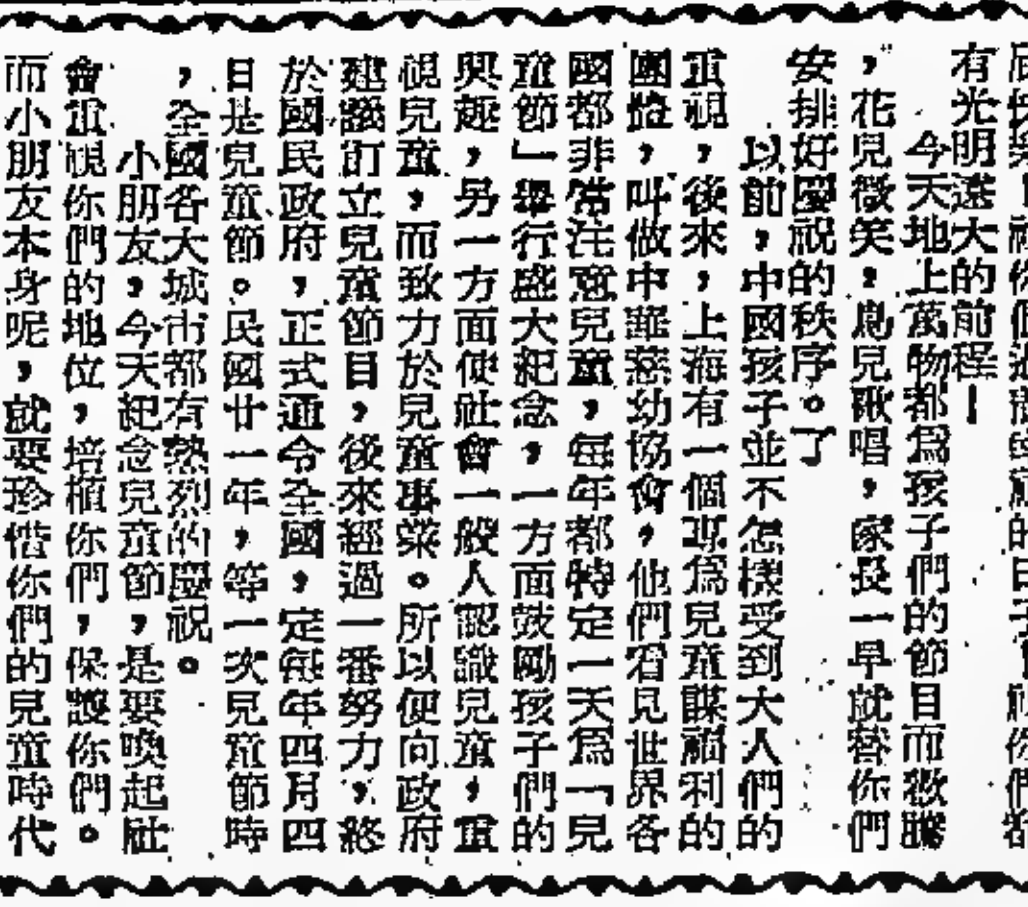 有光明遠大的前程！
今天地上萬物都爲孩子們的節目而歡騰
，花兒微笑，鳥兒歌唱，家長一早就替你們
安排好慶祝的秩序。了
以前，中國孩子並不怎樣受到大人們的
重視，後來，上海有一個專爲兒童謀福利的
團體，叫做中華慈幼協會，他們看見世界各
國都非常注意兒童，每年都特定一天爲「兒
童節」舉行盛大紀念，一方面鼓勵孩子們的
興趣，另一方面使社會一般人認識兒童，重
視兒童，而致力於兒童事業。所以便向政府
建議訂立兒童節目，後來經過一番努力，終
於國民政府，正式通令全國，定每年四月四
日是兒童節。民國廿一年，等一次兒童節時
，全國各大城市都有熱烈的慶祝。
小朋友，今天紀念兒童節，是要喚起社
會重視你們的地位，培植你們，保護你們。
而小朋友本身呢，就要珍惜你們的兒童時代